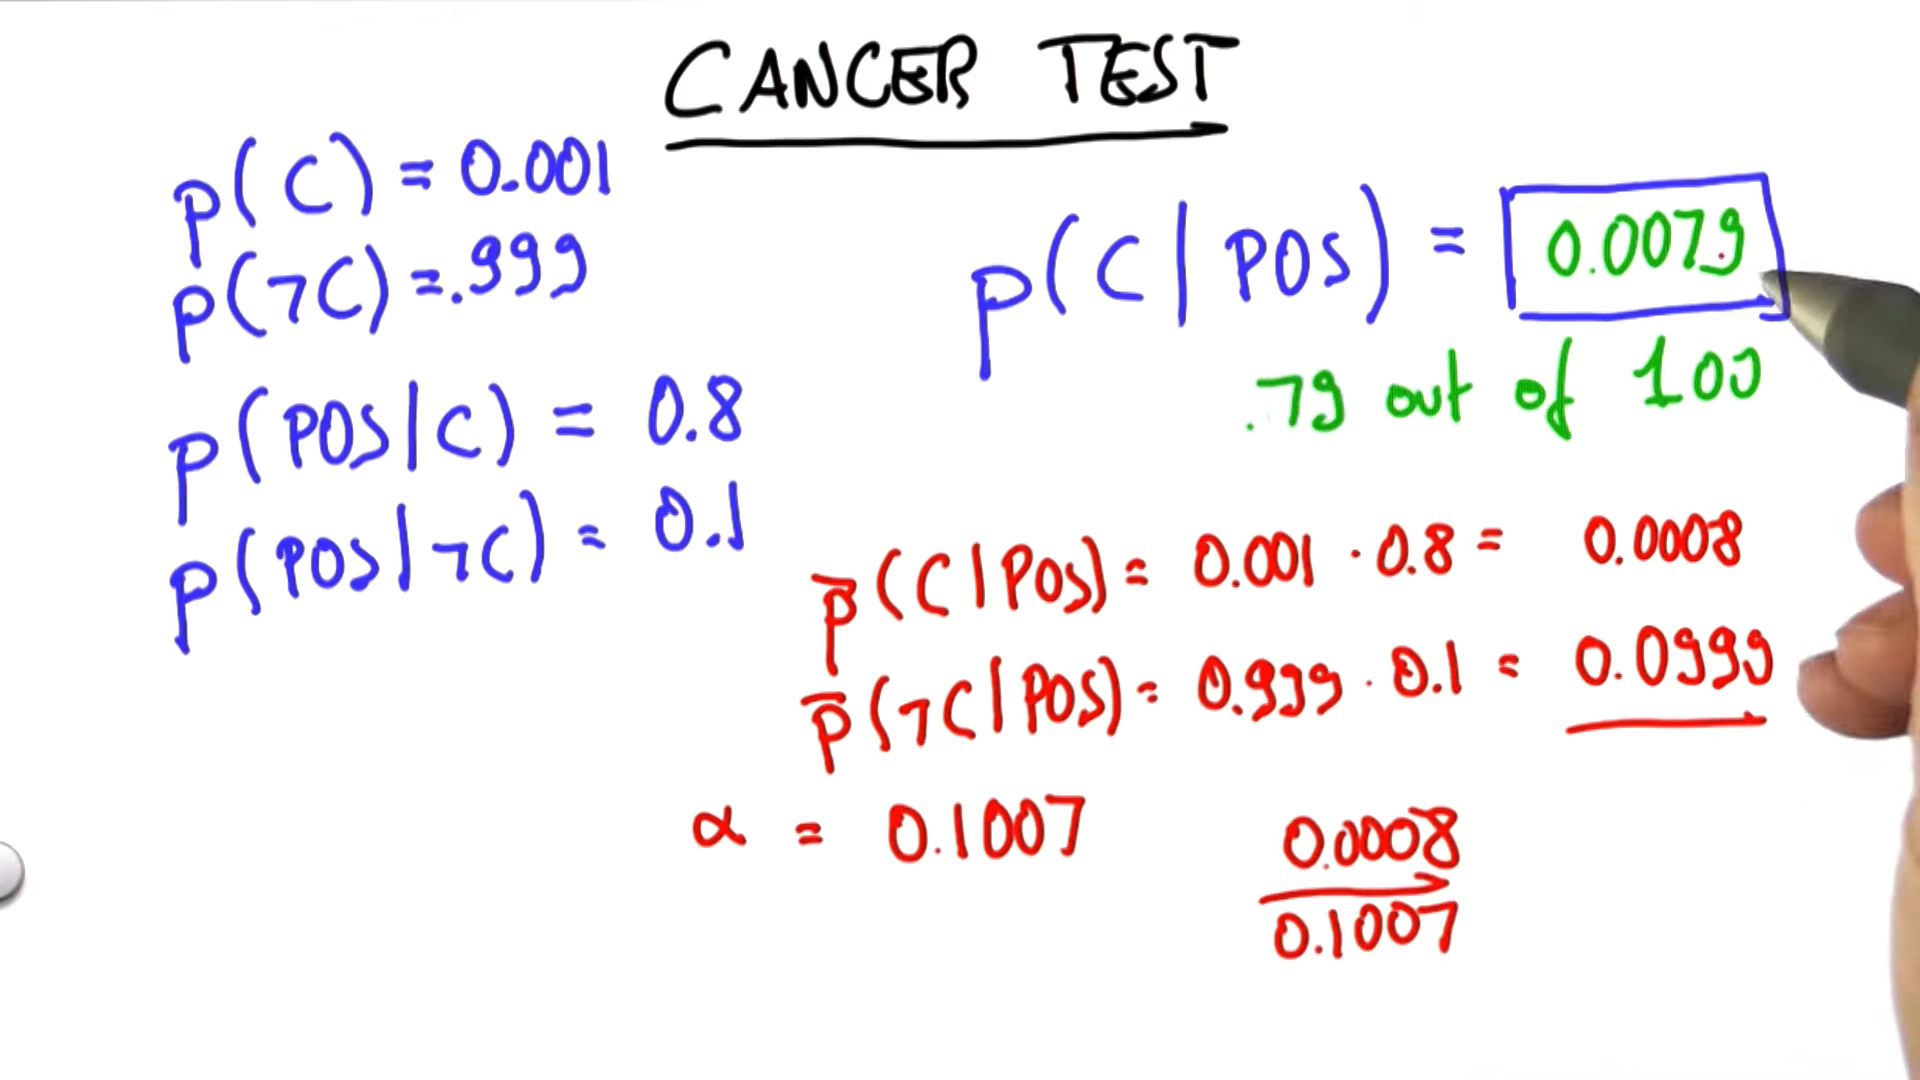 CANCER TEST
p(C) = 0.001
p(¬C) = .999
p(POS|C) = 0.8
p(POS|¬C) = 0.1
p(C|POS) = 0.0079
.79 out of 100
p̄(C|POS) = 0.001 · 0.8 = 0.0008
p̄(¬C|POS) = 0.999 · 0.1 = 0.0999
α = 0.1007
0.0008
0.1007